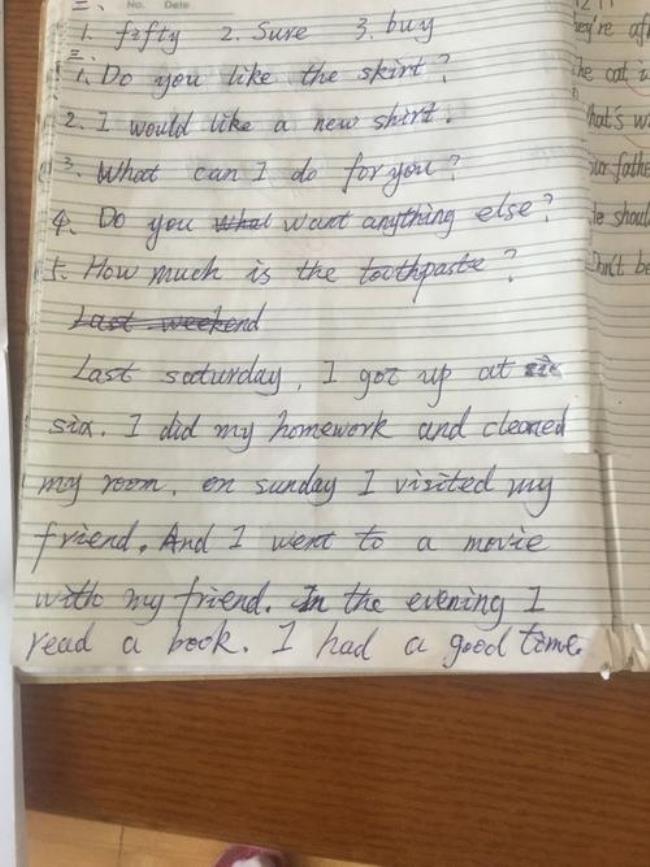 二、
No. Date
1. fifty 2. Sure 3. buy
三
1. Do you like the skirt?
2. I would like a new shirt.
3. What can I do for you?
4. Do you want anything else?
5. How much is the toothpaste?
Last weekend
Last saturday, I got up at
six. I did my homework and cleaned
my room. on sunday I visited my
friend. And I went to a movie
with my friend. In the evening I
read a book. I had a good time.
hey're
he cat
hat's
he shoul
Don't be